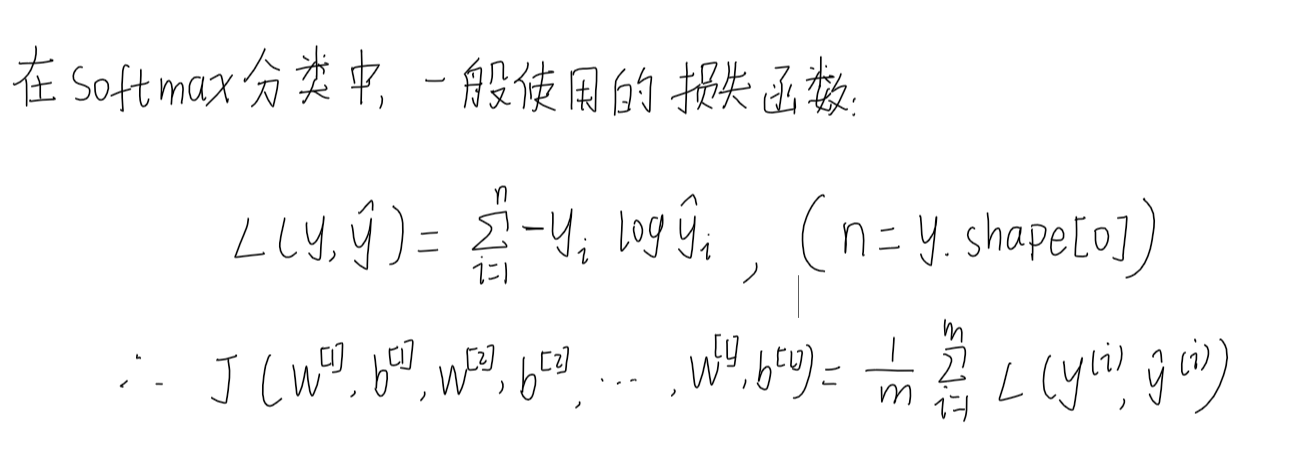 在Softmax分类中,一般使用的损失函数:
L(y,ŷ)=∑_{i=1}^{n}-y_i log ŷ_i , (n=y.shape[0])
∴ J(w^{[1]},b^{[1]},w^{[2]},b^{[2]},…,w^{[L]},b^{[L]})=\frac{1}{m}∑_{i=1}^{m} L(y^{(i)},ŷ^{(i)})